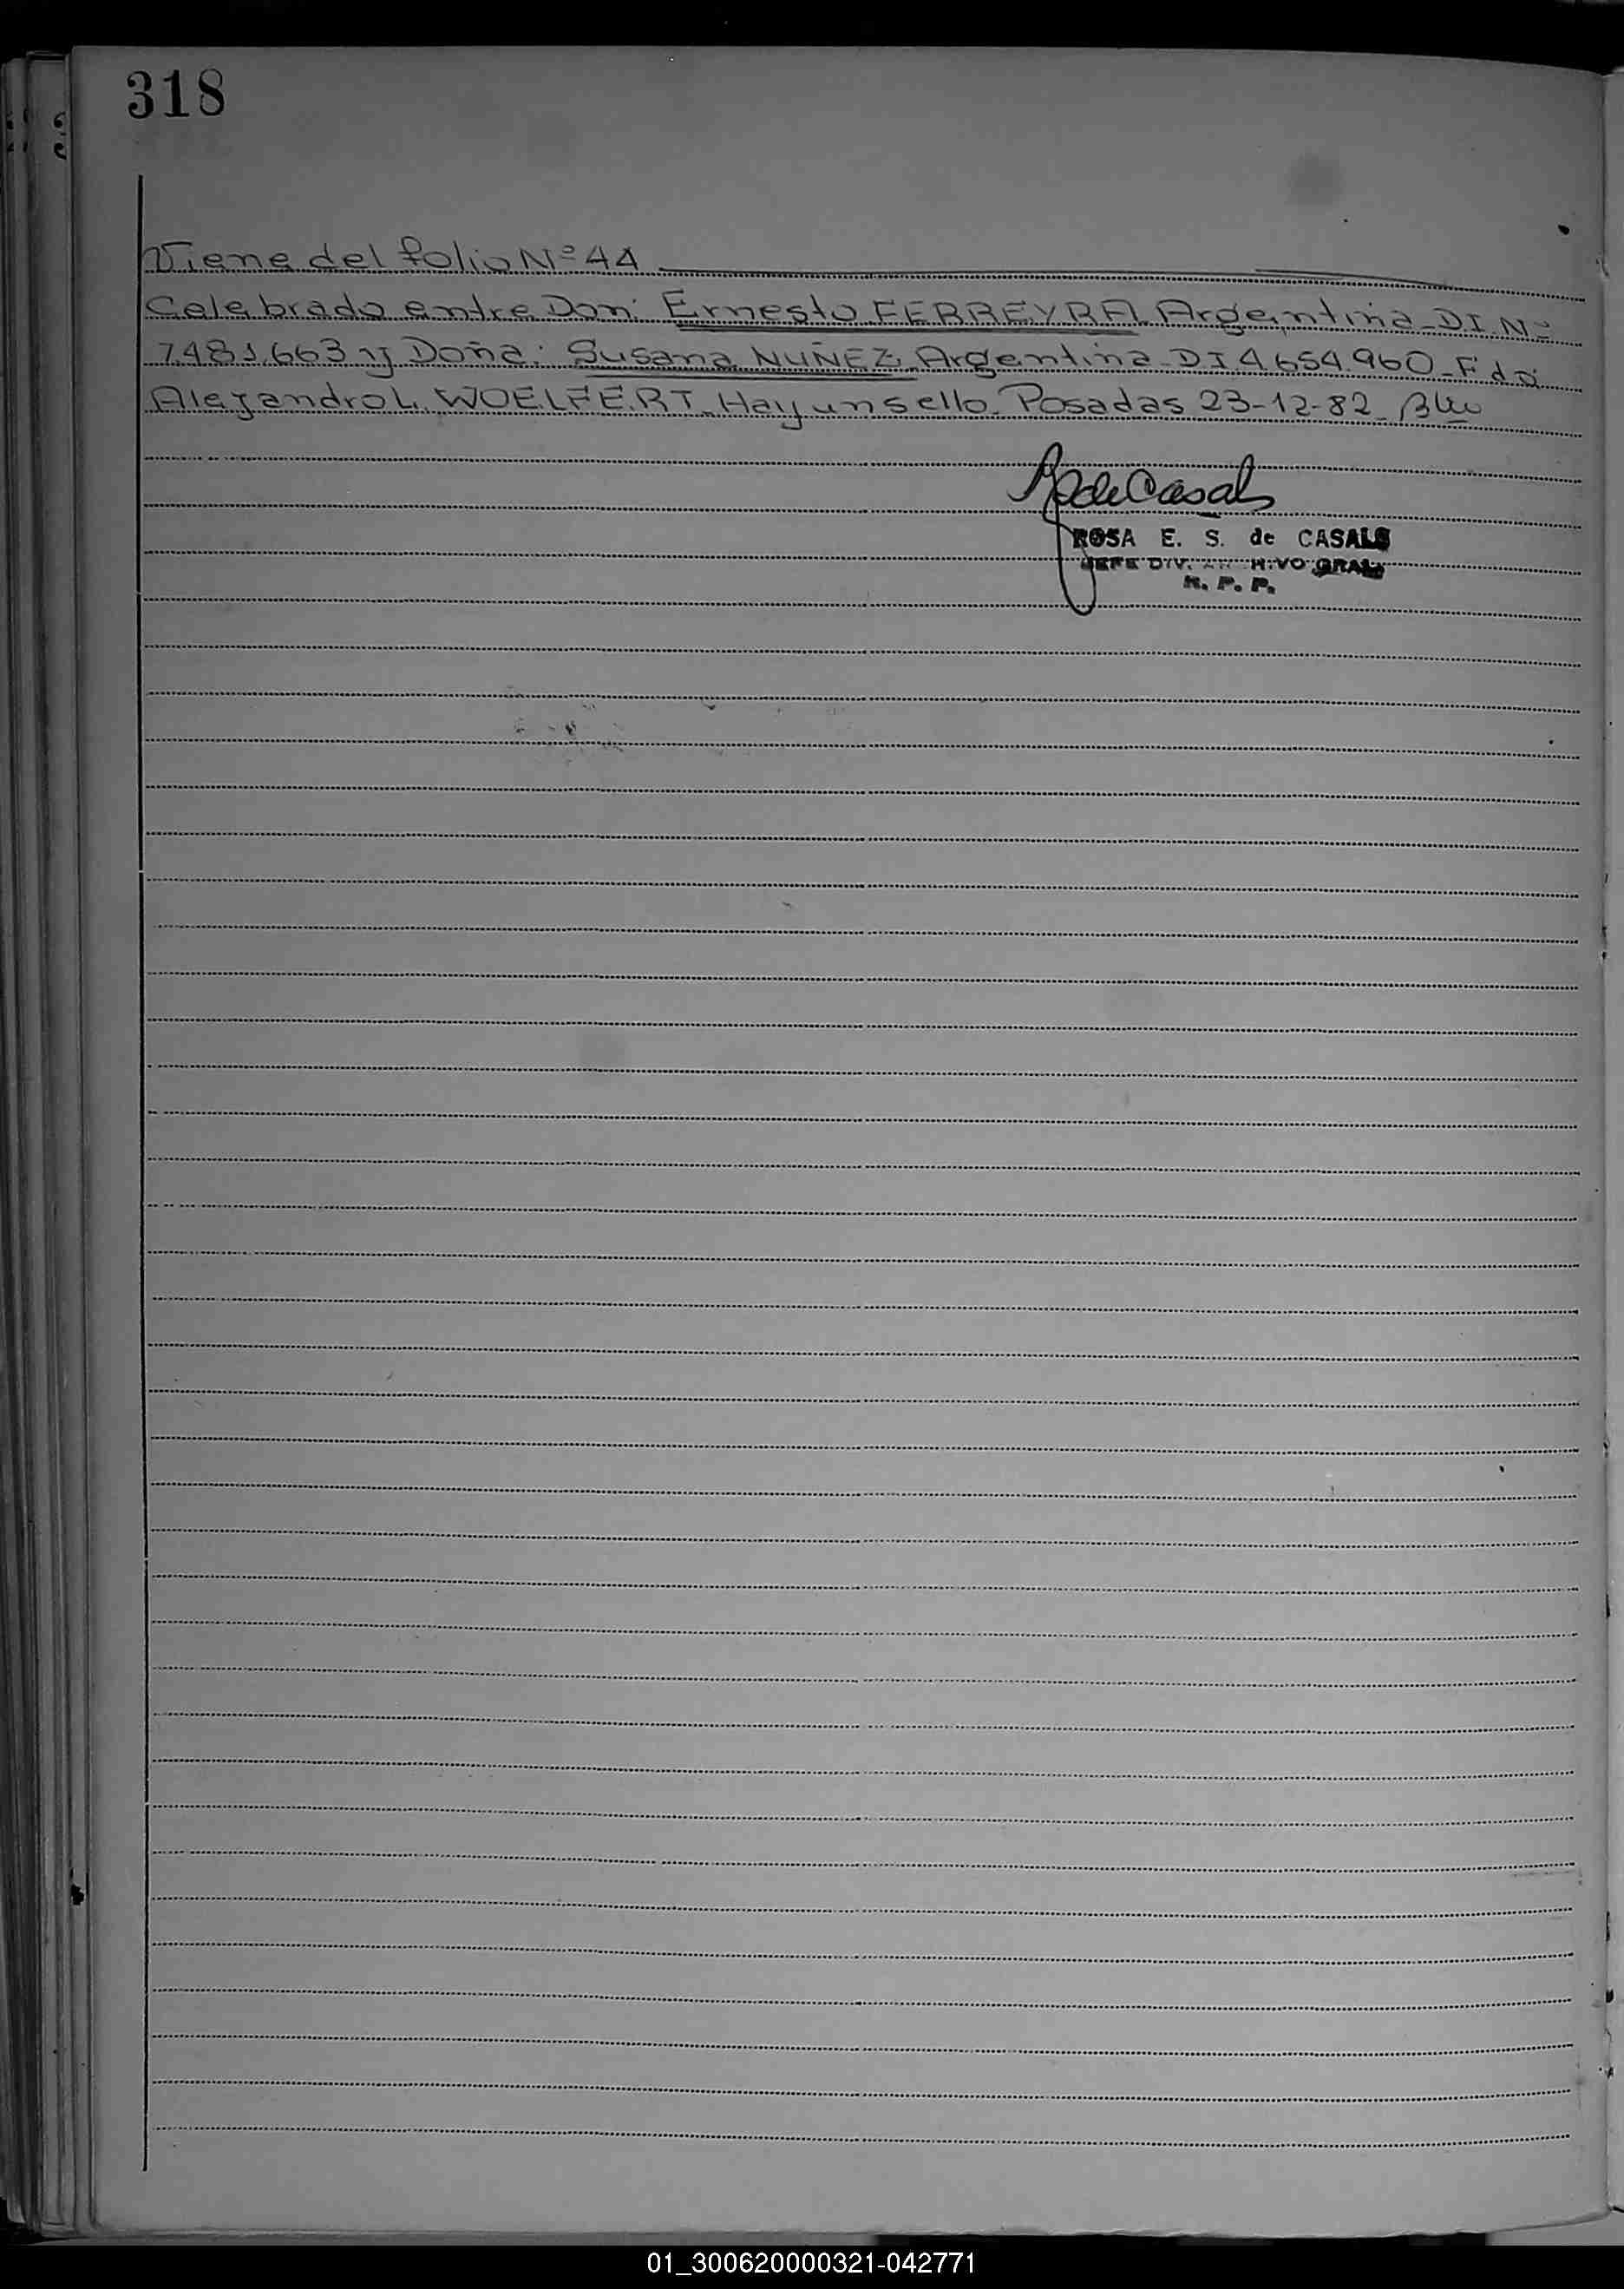 318
Viene del folio Nº 44
Celebrado entre Don: Ernesto FERREYRA Argentina - DI. Nº
7.481.663 y Doña: Susana NUÑEZ, Argentina - DI 4.654.960 - Fdo
Alejandro L. WOELFERT. Hay un sello. Posadas 23-12-82
R de Casals
ROSA E. S. de CASALS
JEFE DIV. ARCHIVO GRAL.
R. P. P.
01_300620000321-042771